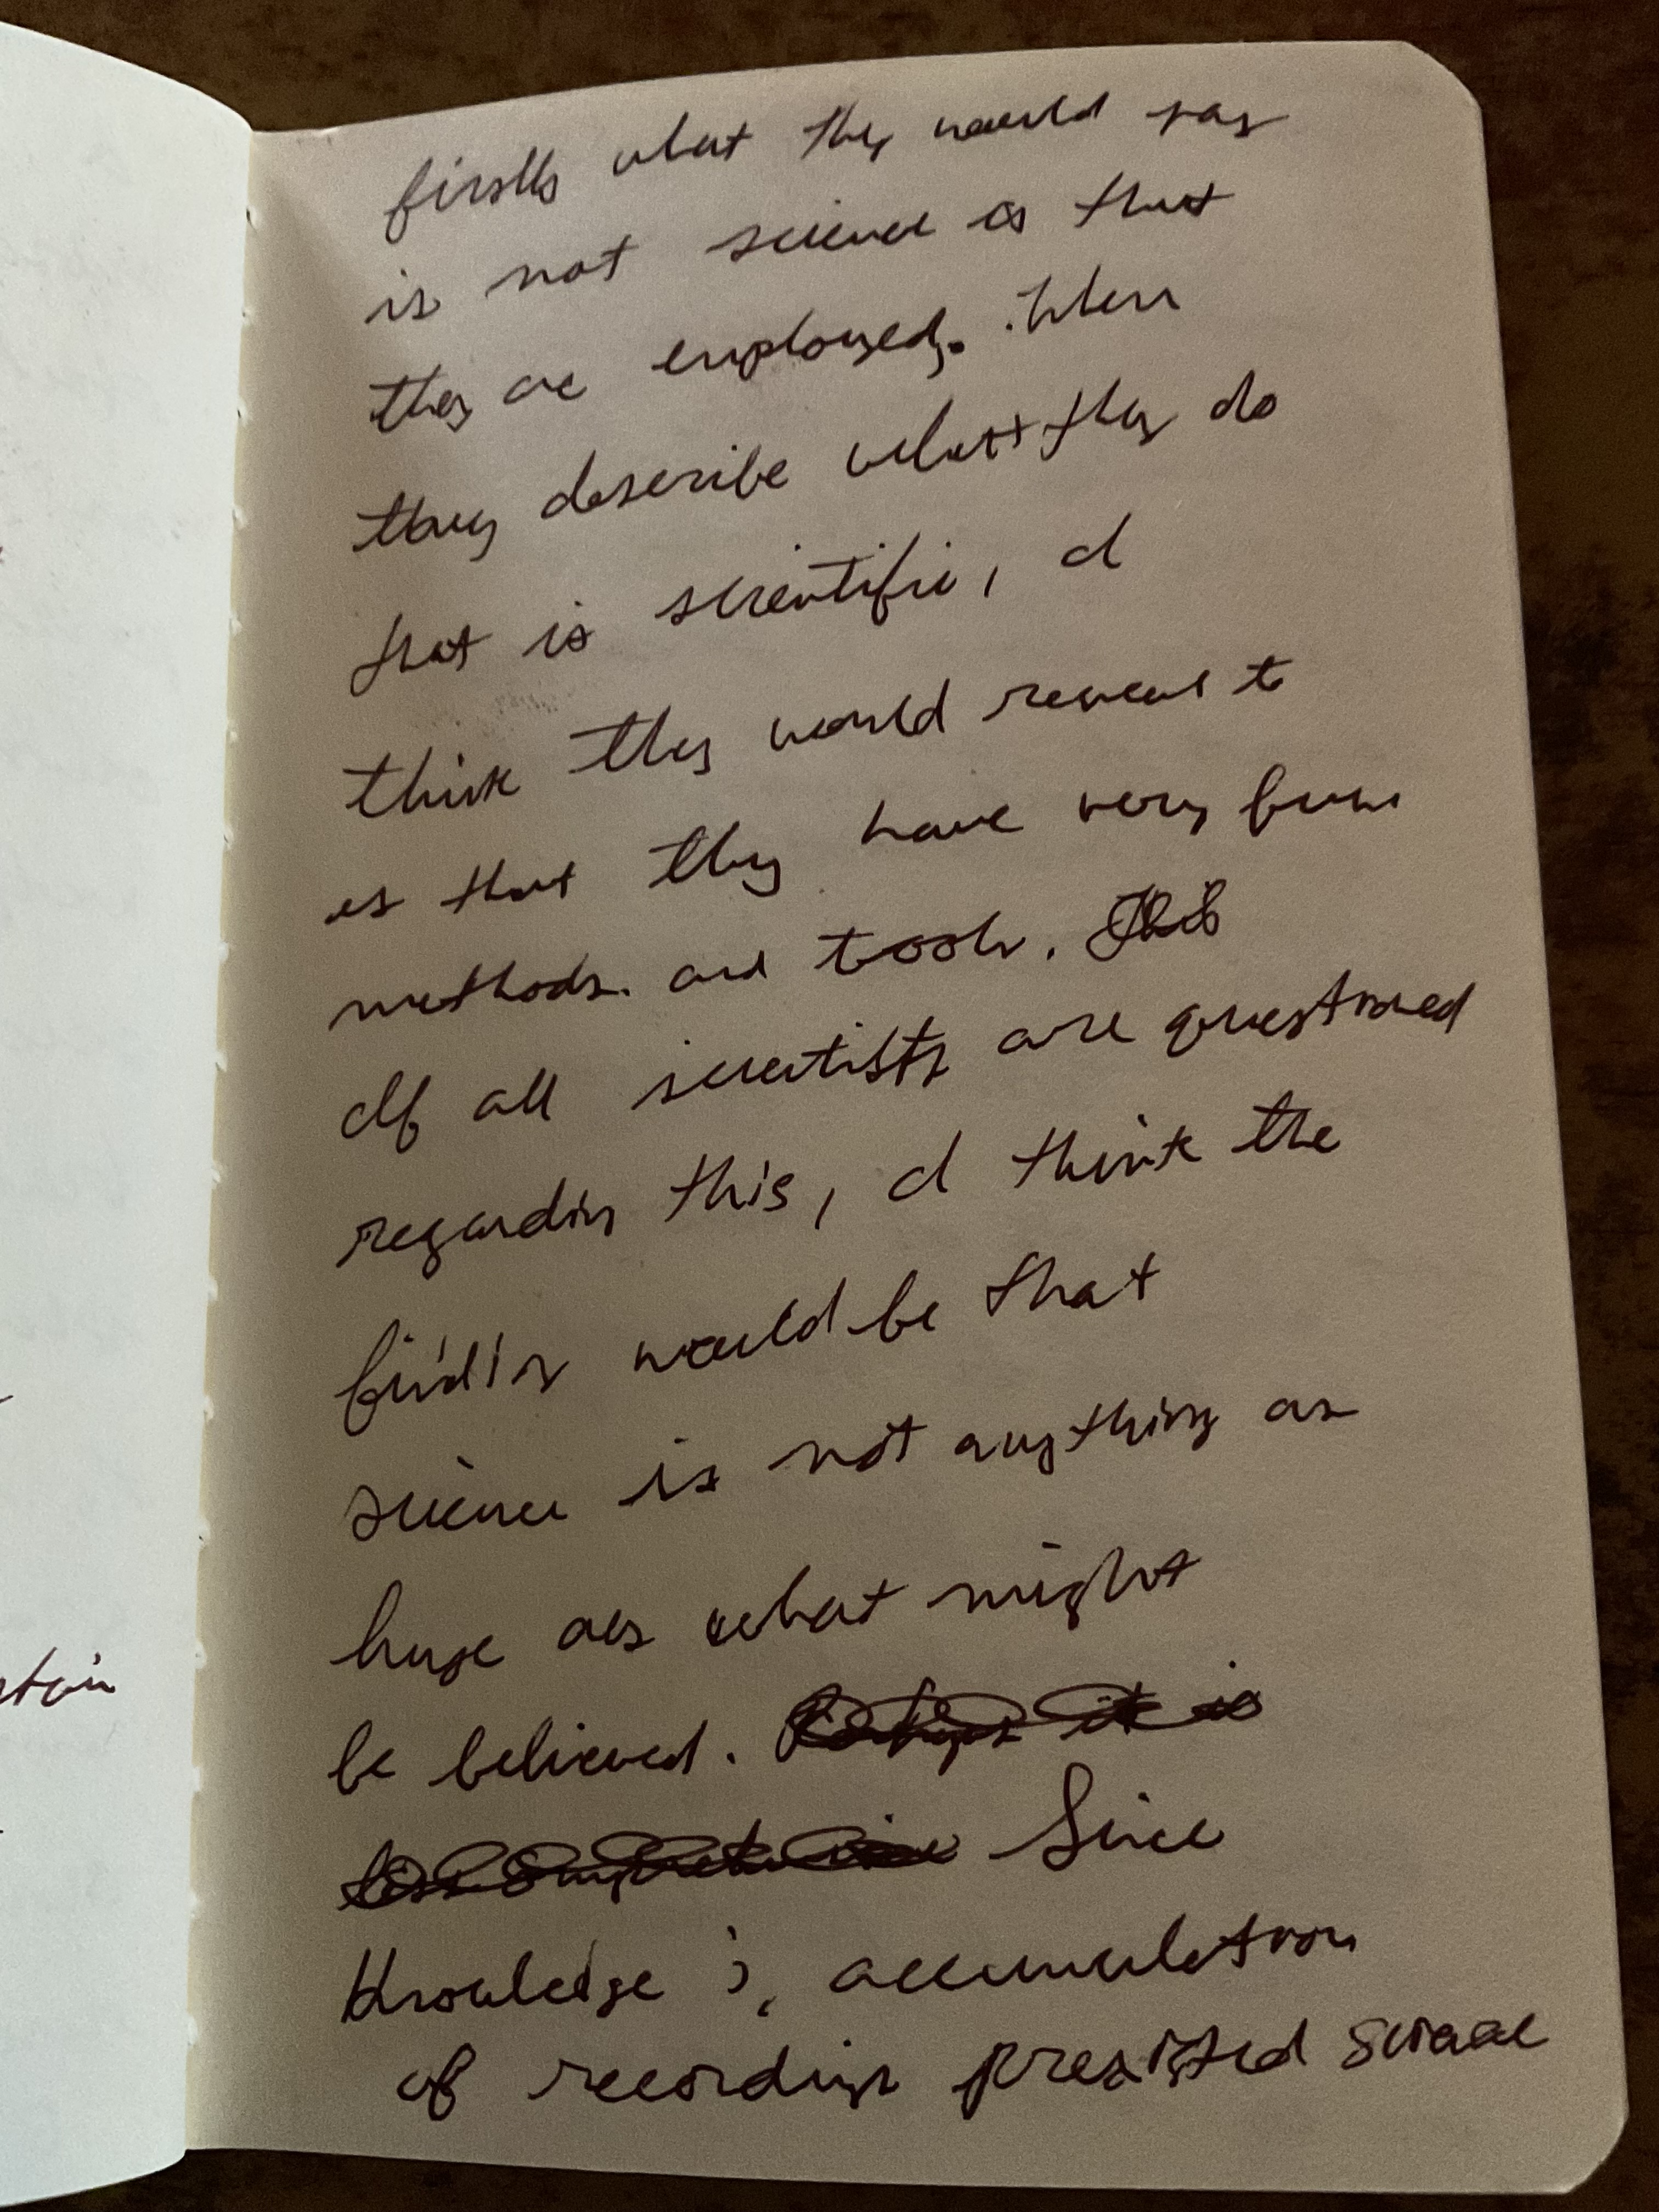 firstly what they would say
is not science is that
they are employed. When
they describe what they do
that is scientific, I
think they would reveal to
us that they have very few
methods and tools.
If all scientists are questioned
regarding this, I think the
finding would be that
science is not anything as
huge as what might
be believed. Perhaps it is
Since
Knowledge is accumulation
of recordings preexisted science
stein